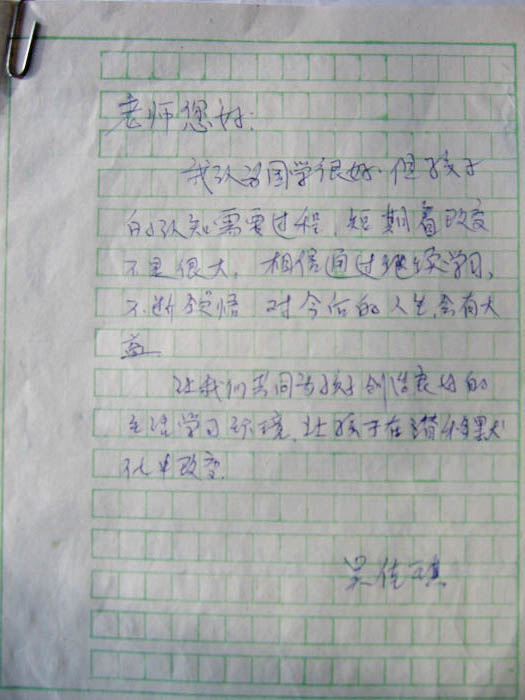 老师您好:
我认为国学很好.但孩子
的认知需要过程,短期看改变
不是很大,相信通过继续学习,
不断领悟 对今后的人生,会有大
益
让我们共同为孩子创造良好的
生活学习环境,让孩子在潜移默
化中改变.
吴佳琪